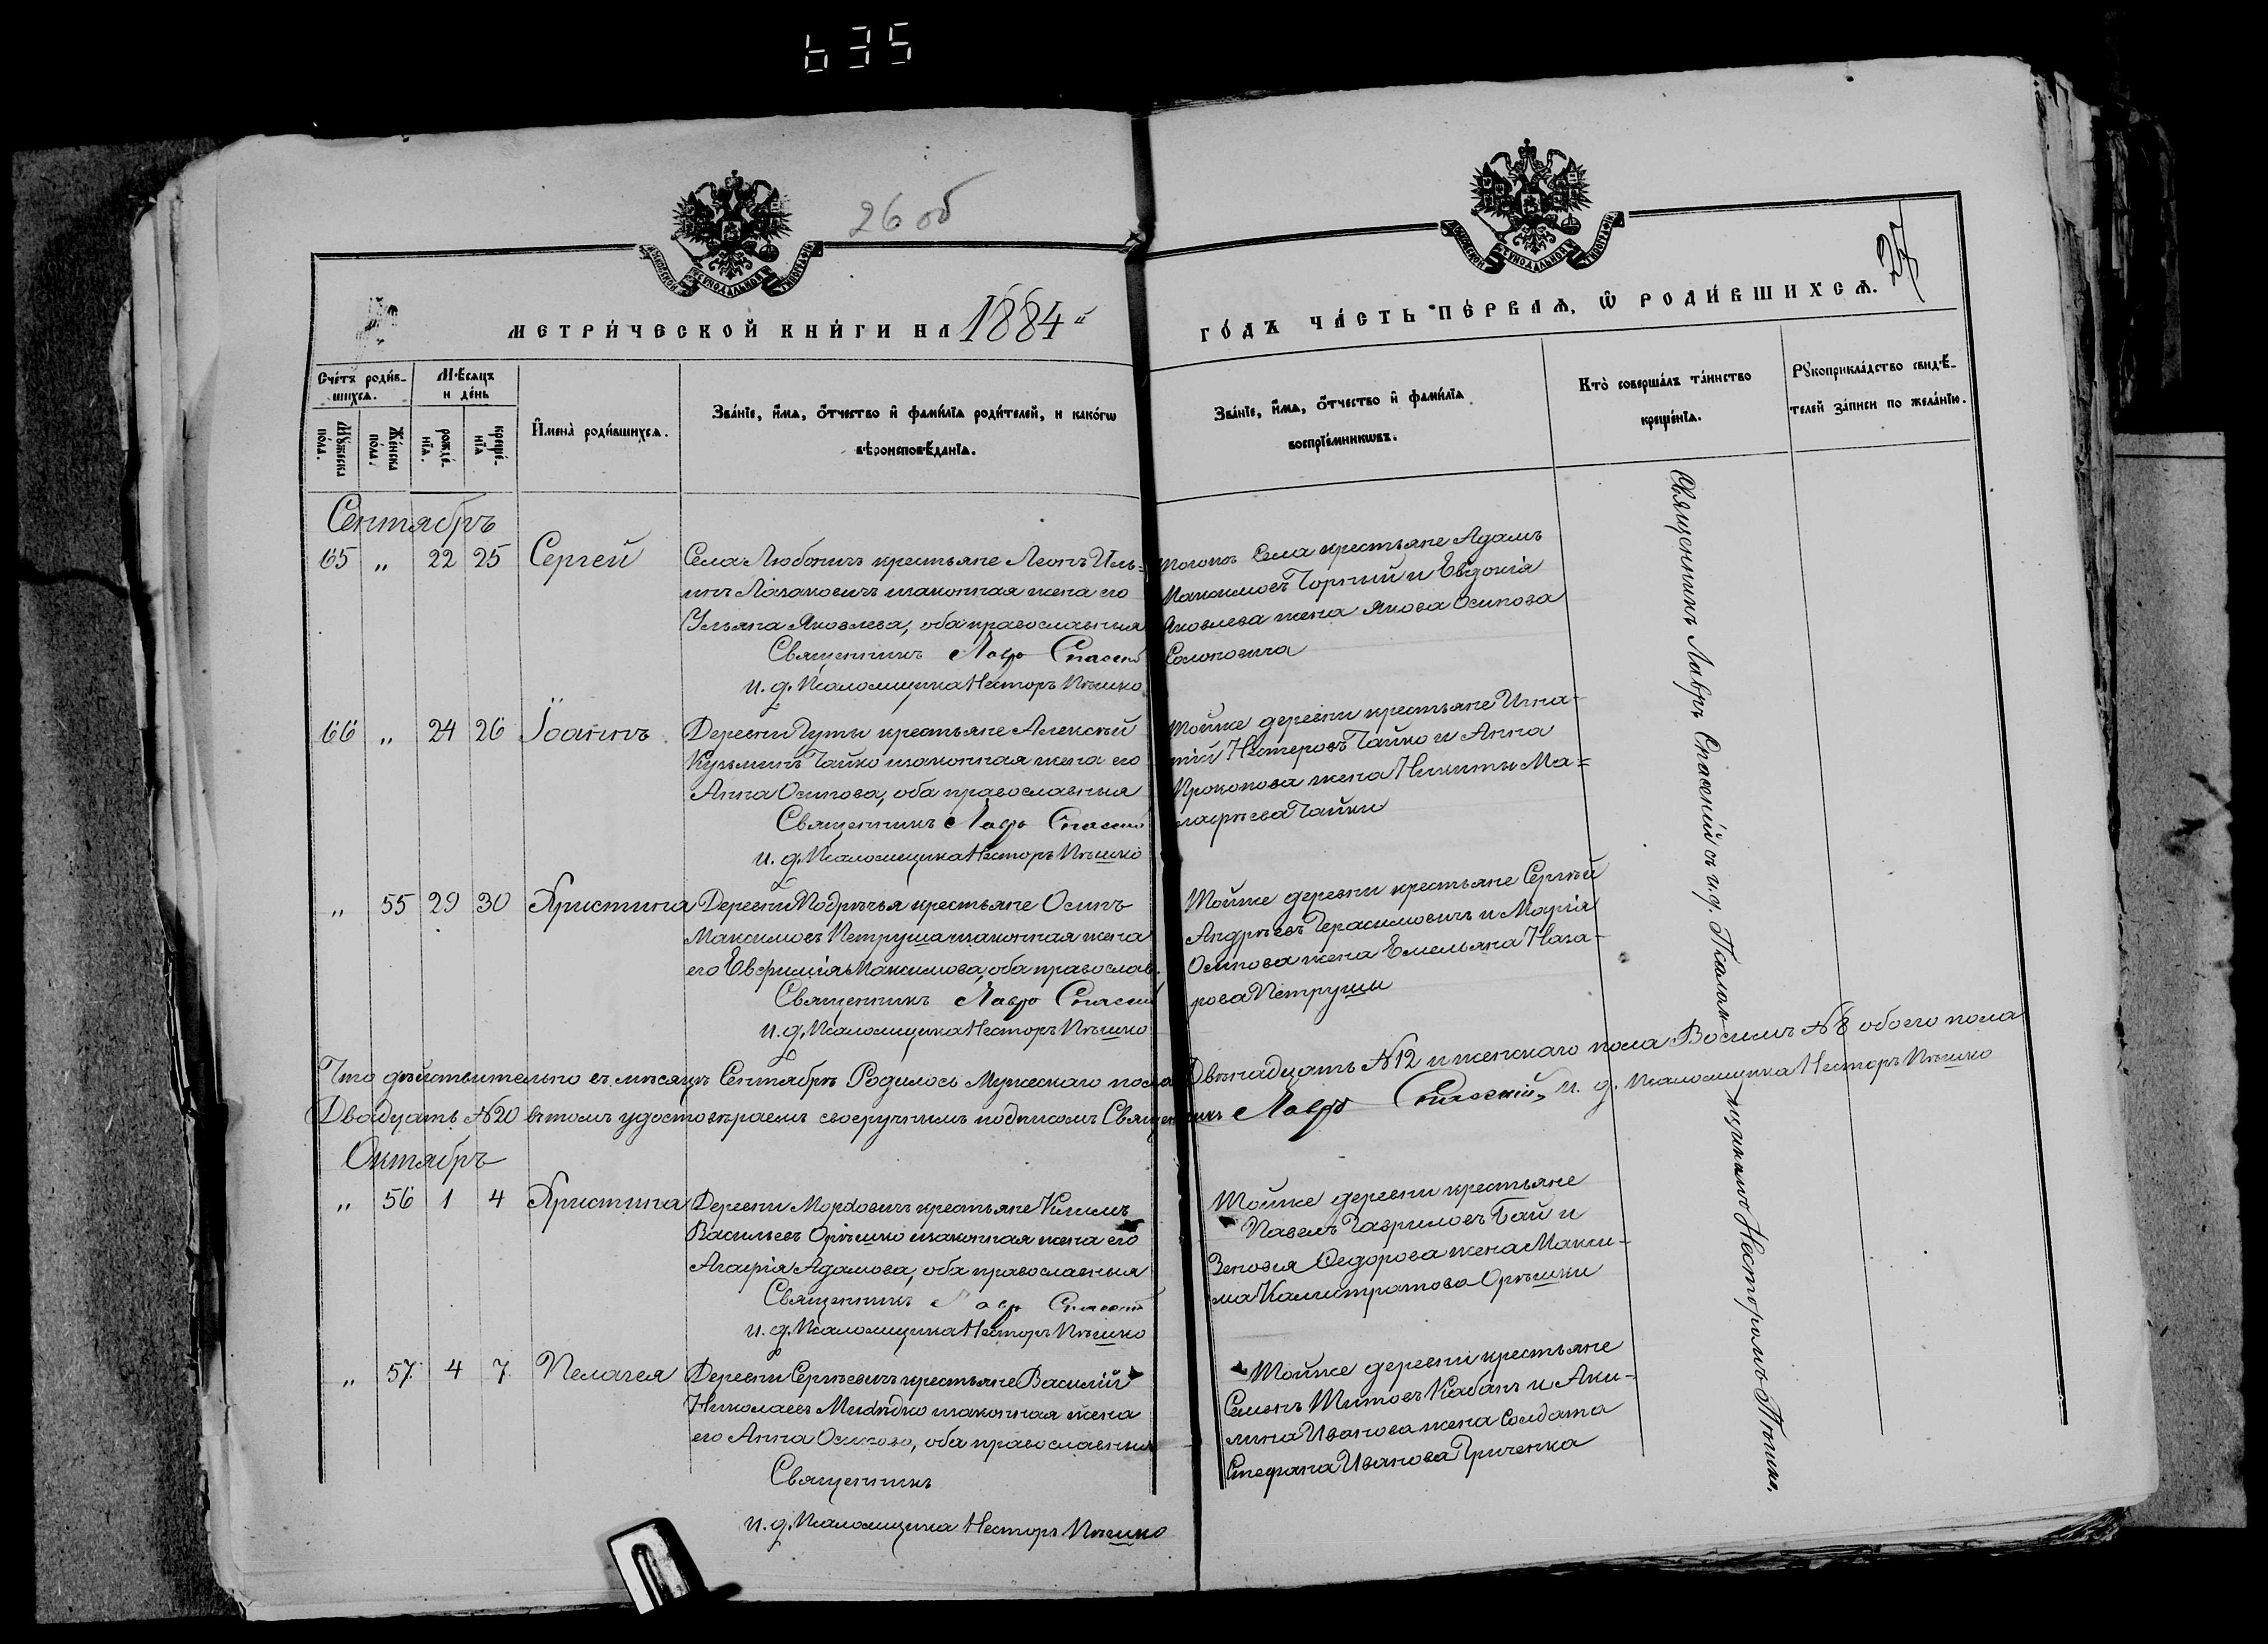 635
26 об
27
МЕТРИ́ЧЕСКОЙ КНИ́ГИ НА 1884 й
ГО́ДЪ ЧА́СТЬ ПЕ́РВАЯ, Ѽ РОДИ́ВШИХСЯ.
Сче́тъ роди́в-
шихся.
М·ѣсяцъ
и де́нь
Му́жеска по́ла.
Же́нска по́ла.
рожде́-
нїя.
креще́-
нїя
И҆мена̀ роди́вшихся.
Зва́нїе, и҆́мя, ѻ҆́тчество и҆ фами́лїя роди́телей, и како́гѡ
вѣроисповѣ́данїя.
Зва́нїе, и҆́мя, ѻ҆́тчество и҆ фами́лїя
воспрїе́мникѡвъ.
Кто̀ соверша́лъ та́инство
креще́нїя.
Рꙋкоприкла́дство свидѣ́-
телей за́писи по жела́нїю.
Сентябрь
65 „ 22 25 Сергей
Села Любонич крестьяне Леонъ Иль-
инъ законная жена его
Ульяна Яковлева, оба православныя
Священникъ Лавръ Спасскій
и. д. Псаломщика Несторъ Пѣшко
тогожъ Села крестьяне Адамъ
Максимовъ и Евдокія
Яковлева жена Якова Осипова
66 „ 24 26 Іоаннъ
Деревни Гуты крестьяне Алексѣй
Кузьминъ Чайко законная жена его
Анна Осипова, оба православныя
Священникъ Лавръ Спасскій
и. д. Псаломщика Несторъ Пѣшко
Тойже деревни крестьяне Игна-
тій Нестеровъ Чайко и Анна
Прокопова жена Никиты Ма-
Чайки
„ 55 29 30 Христина
Деревни Подрѣчья крестьяне Осипъ
Максимовъ Петруша законная жена
его Евфимія Максимова, оба православ.
Священникъ Лавръ Спасскій
и. д. Псаломщика Несторъ Пѣшко
Тойже деревни крестьяне Сергѣй
Андрѣевъ Герасимовичъ и Марія
Осипова жена Емельяна Наза-
рова Петруши
Что дѣйствительно въ мѣсяцѣ Сентябрѣ Родилось Мужескаго пола Двѣнадцать №12 и женскаго пола Восемь №8 обоего пола
Двадцать №20 в томъ удостовѣряемъ своеручнымъ подписомъ Священникъ Лавръ Спасскій, и. д. Псаломщика Несторъ Пѣшко
Октябрь
„ 56 1 4 Христина
Деревни Мордовичъ крестьяне Климъ
Васильевъ Орѣшко законная жена его
Агафія Адамова, оба православныя
Священникъ Лавръ Спасскій
и. д. Псаломщика Несторъ Пѣшко
Тойже деревни крестьяне
Павелъ Гавриловъ Бай и
Зеновія Ѳедорова жена Макси-
ма Калистратова Орѣшки
„ 57 4 7 Пелагея
Деревни Сергѣевичъ крестьяне Василій
Николаевъ законная жена
его Анна Осипова, оба православныя
Священникъ
и. д. Псаломщика Несторъ Пѣшко
Тойже деревни крестьяне
Семенъ Титовъ Кабанъ и Аку-
лина Иванова жена Солдата
Стефана Иванова Гриченка
Священникъ Лавръ Спасскій съ и. д. Псалом-
щикомъ Несторомъ Пѣшко.